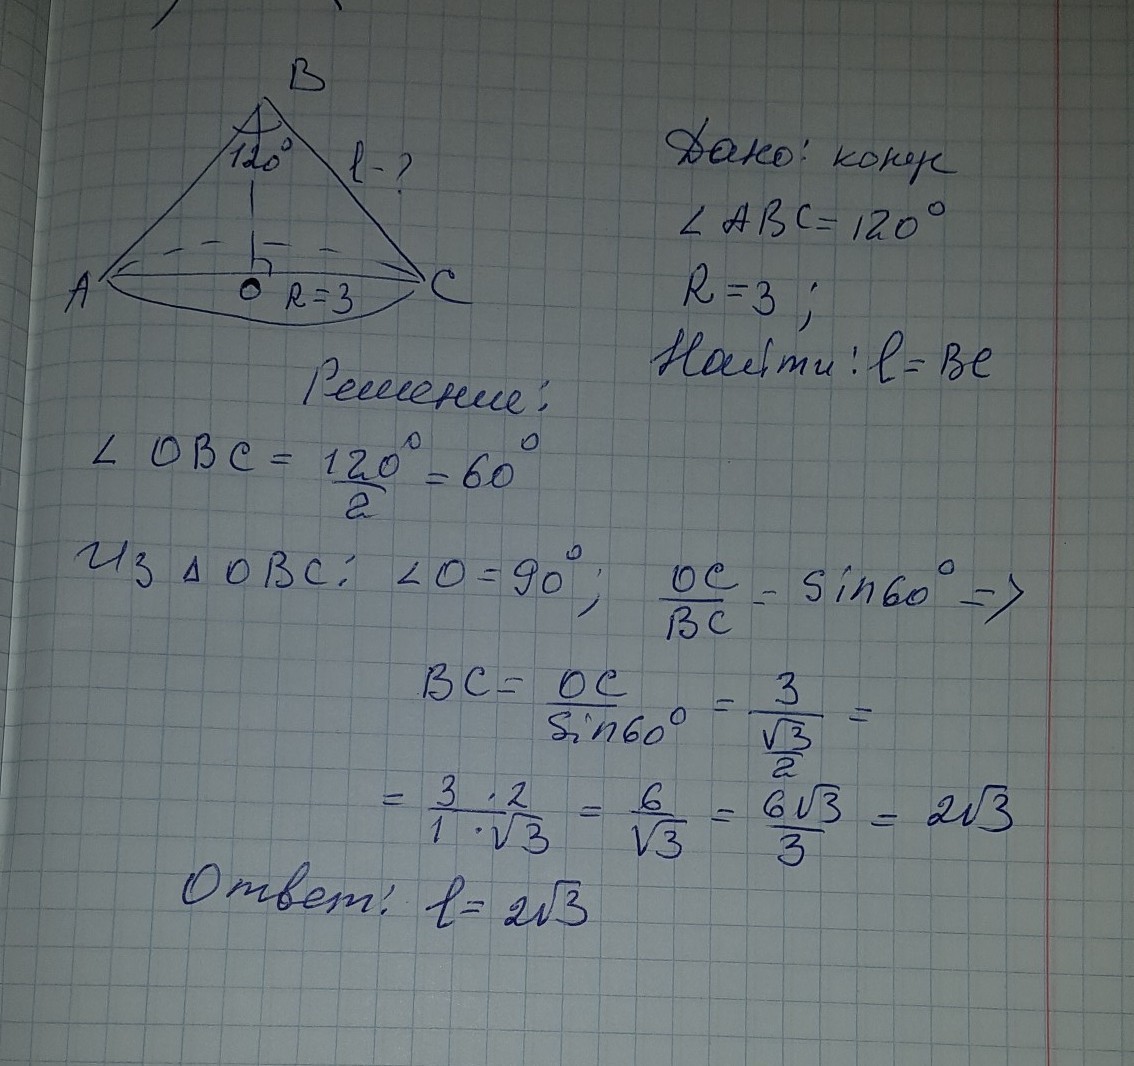 B
120°
l - ?
A
O
R = 3
C
Дано: конус
∠ABC = 120°
R = 3 ;
Найти: l = BC
Решение:
∠OBC = 120°/2 = 60°
Из △OBC: ∠O = 90°; OC/BC = Sin60° =>
BC = OC/Sin60° = 3/(√3/2) =
= 3·2/1·√3 = 6/√3 = 6√3/3 = 2√3
Ответ: l = 2√3